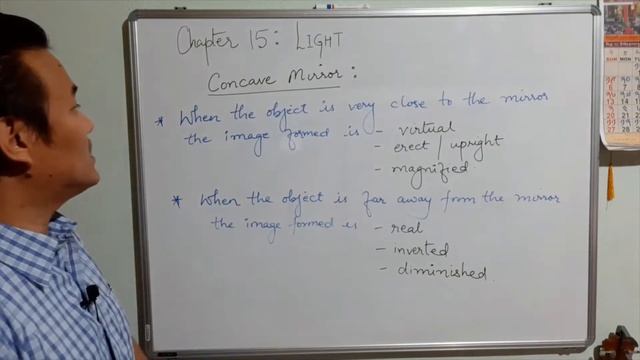 Chapter 15: LIGHT
Concave Mirror:
* When the object is very close to the mirror
the image formed is - virtual
- erect / upright
- magnified
* When the object is far away from the mirror
the image formed is - real
- inverted
- diminished.
SUN MON